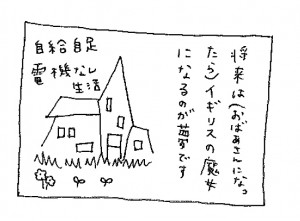 将来は(おばあさんになっ
たら)イギリスの魔女
になるのが夢です
自給自足
電機なし
生活